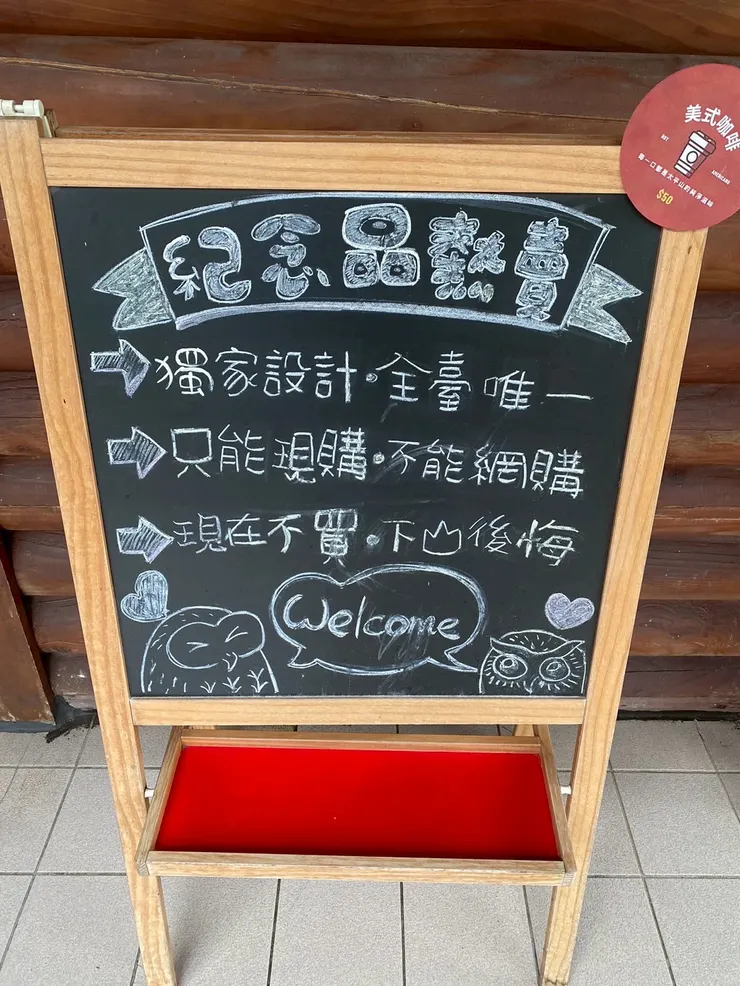 紀念品熱賣
獨家設計・全臺唯一
只能現購・不能網購
現在不買・下山後悔
Welcome
美式咖啡
HOT
AMERICANO
每一口都是太平山的純淨滋味
$50